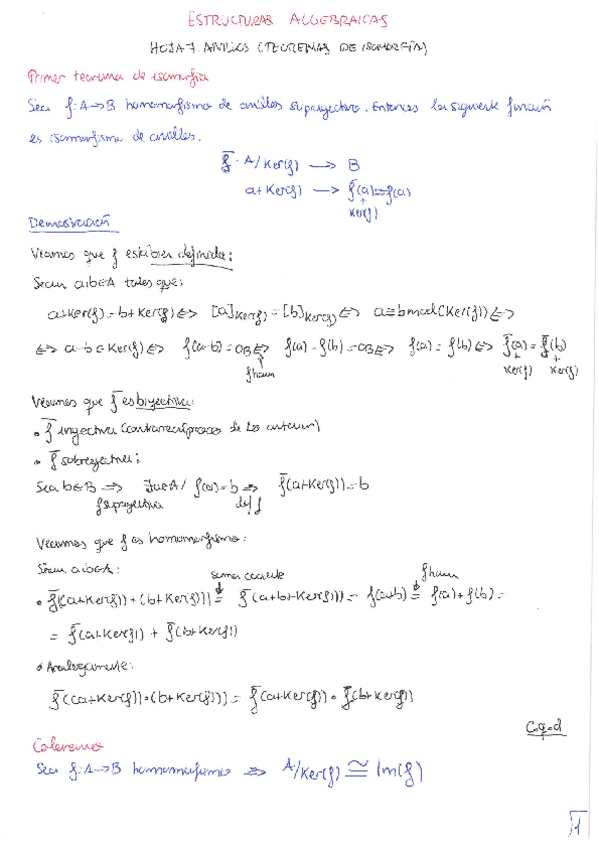 ESTRUCTURAS ALGEBRAICAS
HOJA 7. ANILLOS (TEOREMAS DE ISOMORFÍA)
Primer teorema de isomorfía
Sea f: A→B homomorfismo de anillos suprayectivo. Entonces la siguiente función
es isomorfismo de anillos.
f̄: A/Ker(f) → B
a+Ker(f) → f̄(a)=f(a)
+
Ker(f)
Demostración
Veamos que f̄ está bien definida:
Sean a,b∈A tales que:
a+Ker(f)=b+Ker(f) ⇔ [a]Ker(f) = [b]Ker(f) ⇔ a≡b mod(Ker(f)) ⇔
⇔ a-b∈Ker(f) ⇔ f(a-b)=0B ⇔ f(a)-f(b)=0B ⇔ f(a)=f(b) ⇔ f̄(a)=f̄(b)
f hom + +
Ker(f) Ker(f)
Veamos que f̄ es biyectiva:
• f̄ inyectiva (contrarrecíproco de lo anterior)
• f̄ sobreyectiva:
Sea b∈B ⇒ ∃a∈A / f(a)=b ⇒ f̄(a+Ker(f))=b
f suprayectiva def f̄
Veamos que f es homomorfismo:
Sean a,b∈A:
suma cociente f hom
• f̄((a+Ker(f))+(b+Ker(f))) = f̄(a+b+Ker(f)) = f(a+b) = f(a)+f(b) =
= f̄(a+Ker(f)) + f̄(b+Ker(f))
• Análogamente:
f̄((a+Ker(f))•(b+Ker(f))) = f̄(a+Ker(f)) • f̄(b+Ker(f))
C.q.d
Corolario
Sea f: A→B homomorfismo ⇒ A/Ker(f) ≅ Im(f)
1